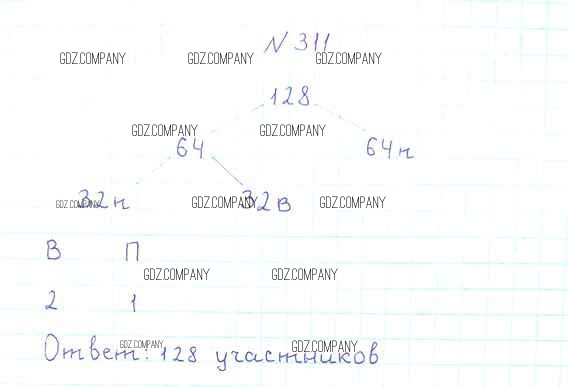 N 311
GDZ.COMPANY GDZ.COMPANY GDZ.COMPANY
128
GDZ.COMPANY GDZ.COMPANY
64 64н
32н 32в
GDZ.COMPANY GDZ.COMPANY GDZ.COMPANY
В П
GDZ.COMPANY GDZ.COMPANY
2 1
GDZ.COMPANY GDZ.COMPANY
Ответ: 128 участников